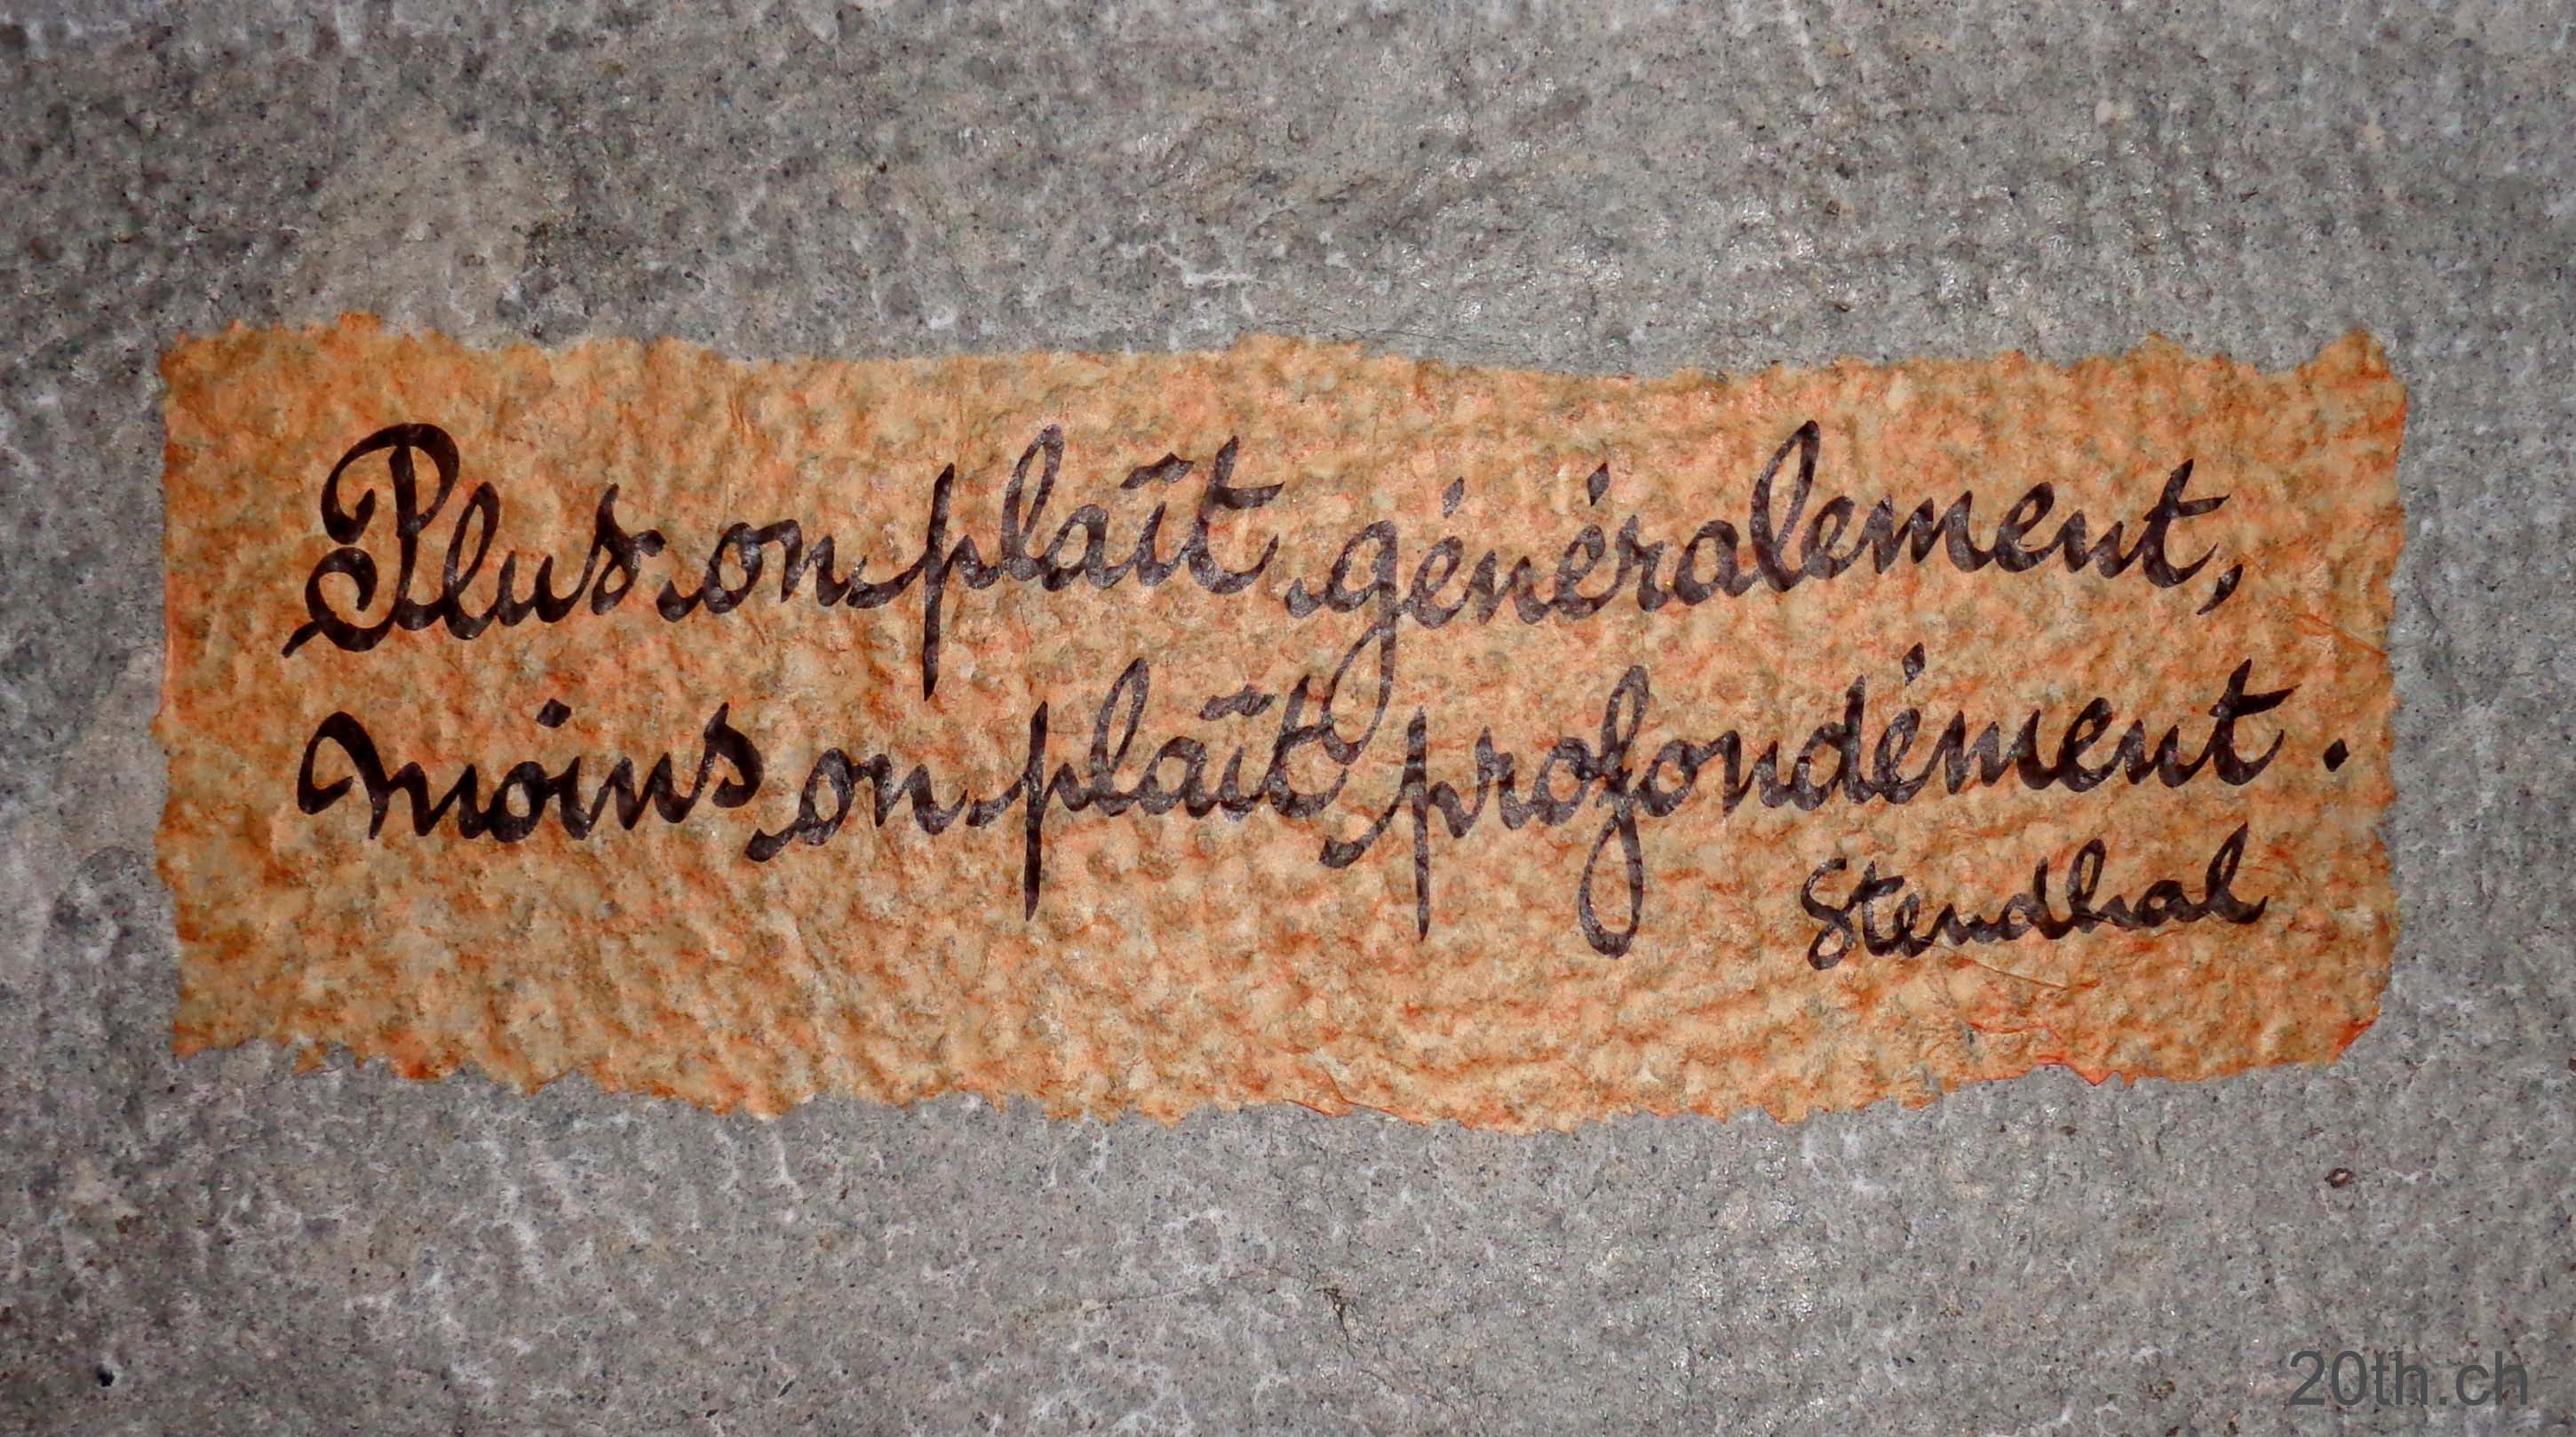 Plus on plaît généralement,
moins on plaît profondément.
Stendhal
20th.ch